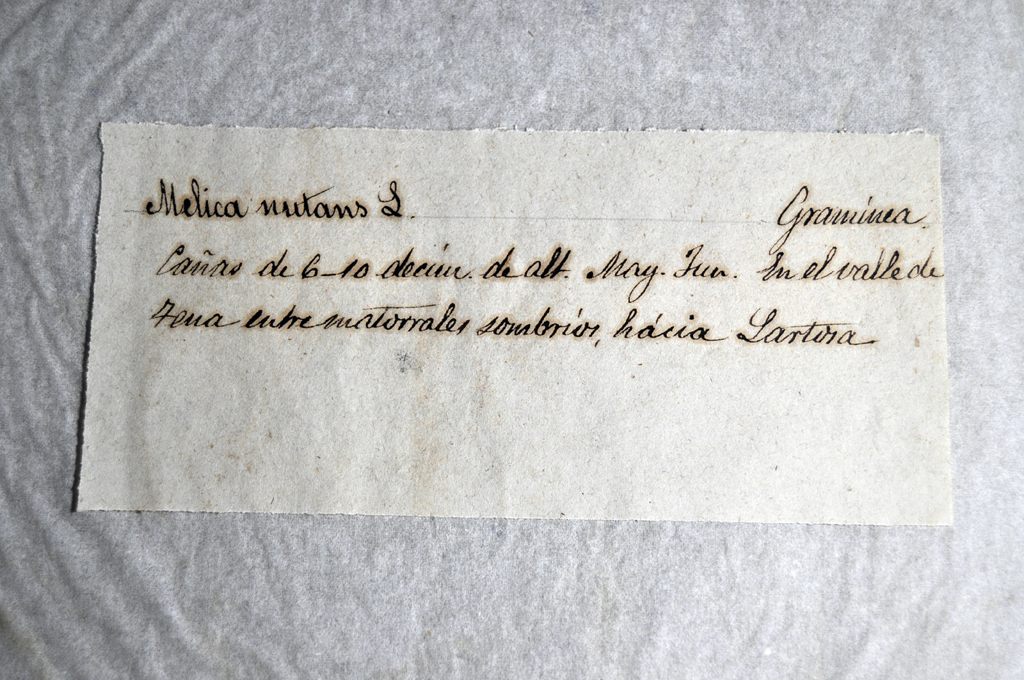 Melica nutans L. Gramínea.
Cañas de 6-10 decím. de alt. May. Jun. En el valle de
Tena entre matorrales sombríos, hácia Lartosa